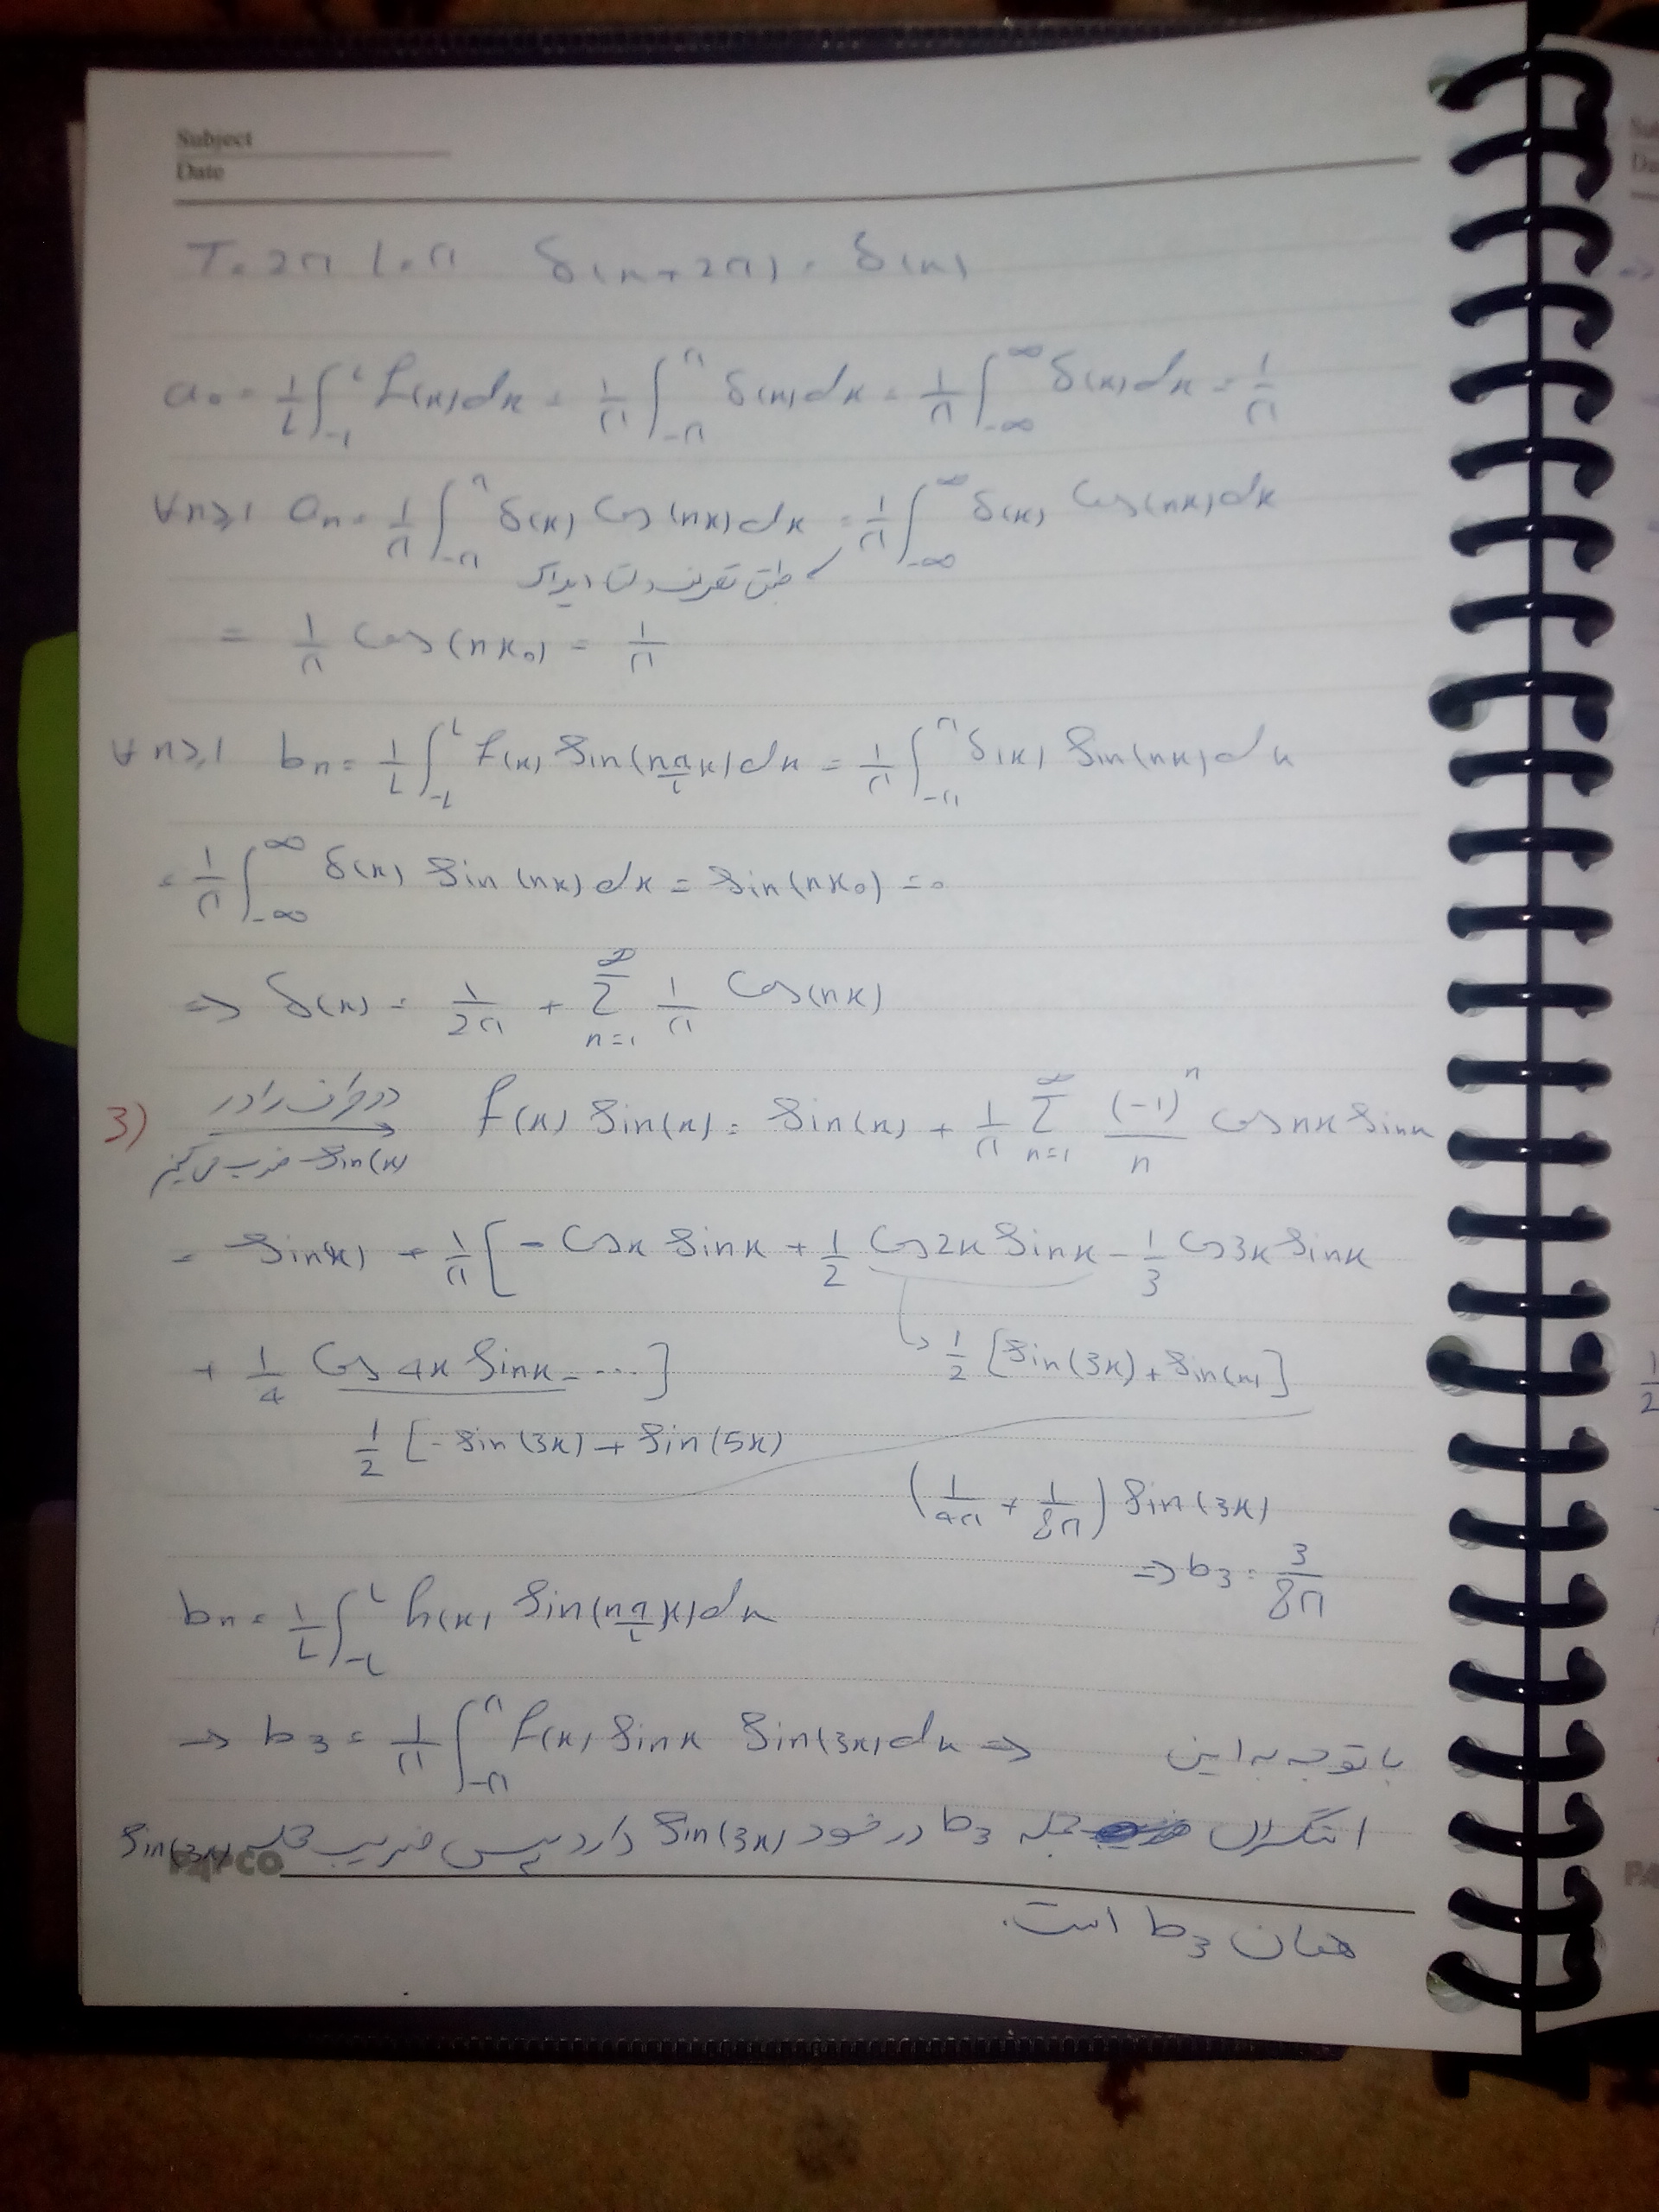 Subject
Date
T = 2π L = π δ(x+2π) = δ(x)
a₀ = 1/L ∫_{-L}^{L} f(x)dx = 1/π ∫_{-π}^{π} δ(x)dx = 1/π ∫_{-∞}^{∞} δ(x)dx = 1/π
∀n≥1 aₙ = 1/π ∫_{-π}^{π} δ(x) Cos(nx)dx = 1/π ∫_{-∞}^{∞} δ(x) Cos(nx)dx
طبق تعریف دلتا دیراک
= 1/π Cos(nx₀) = 1/π
∀n≥1 bₙ = 1/L ∫_{-L}^{L} f(x) Sin(nπ/L x)dx = 1/π ∫_{-π}^{π} δ(x) Sin(nx)dx
= 1/π ∫_{-∞}^{∞} δ(x) Sin(nx)dx = Sin(nx₀) = 0
⇒ δ(x) = 1/2π + Σ_{n=1}^{∞} 1/π Cos(nx)
3) دو طرف را در Sin(x) ضرب می‌کنیم → f(x) Sin(x) = Sin(x) + 1/π Σ_{n=1}^{∞} (-1)ⁿ/n Cos nx Sin x
= Sin(x) + 1/π [ - Cos x Sin x + 1/2 Cos 2x Sin x - 1/3 Cos 3x Sin x
+ 1/4 Cos 4x Sin x - ... ] ↳ 1/2 [Sin(3x) + Sin(x)]
1/2 [- Sin(3x) + Sin(5x)
(1/4π + 1/8π) Sin(3x)
⇒ b₃ = 3/8π
bₙ = 1/L ∫_{-L}^{L} h(x) Sin(nπ/L x)dx
→ b₃ = 1/π ∫_{-π}^{π} f(x) Sin x Sin(3x)dx ⇒ با توجه به این
انتگرال جمله b₃ در خود Sin(3x) دارد پس ضریب جمله Sin(3x)
PAPCO
همان b₃ است.